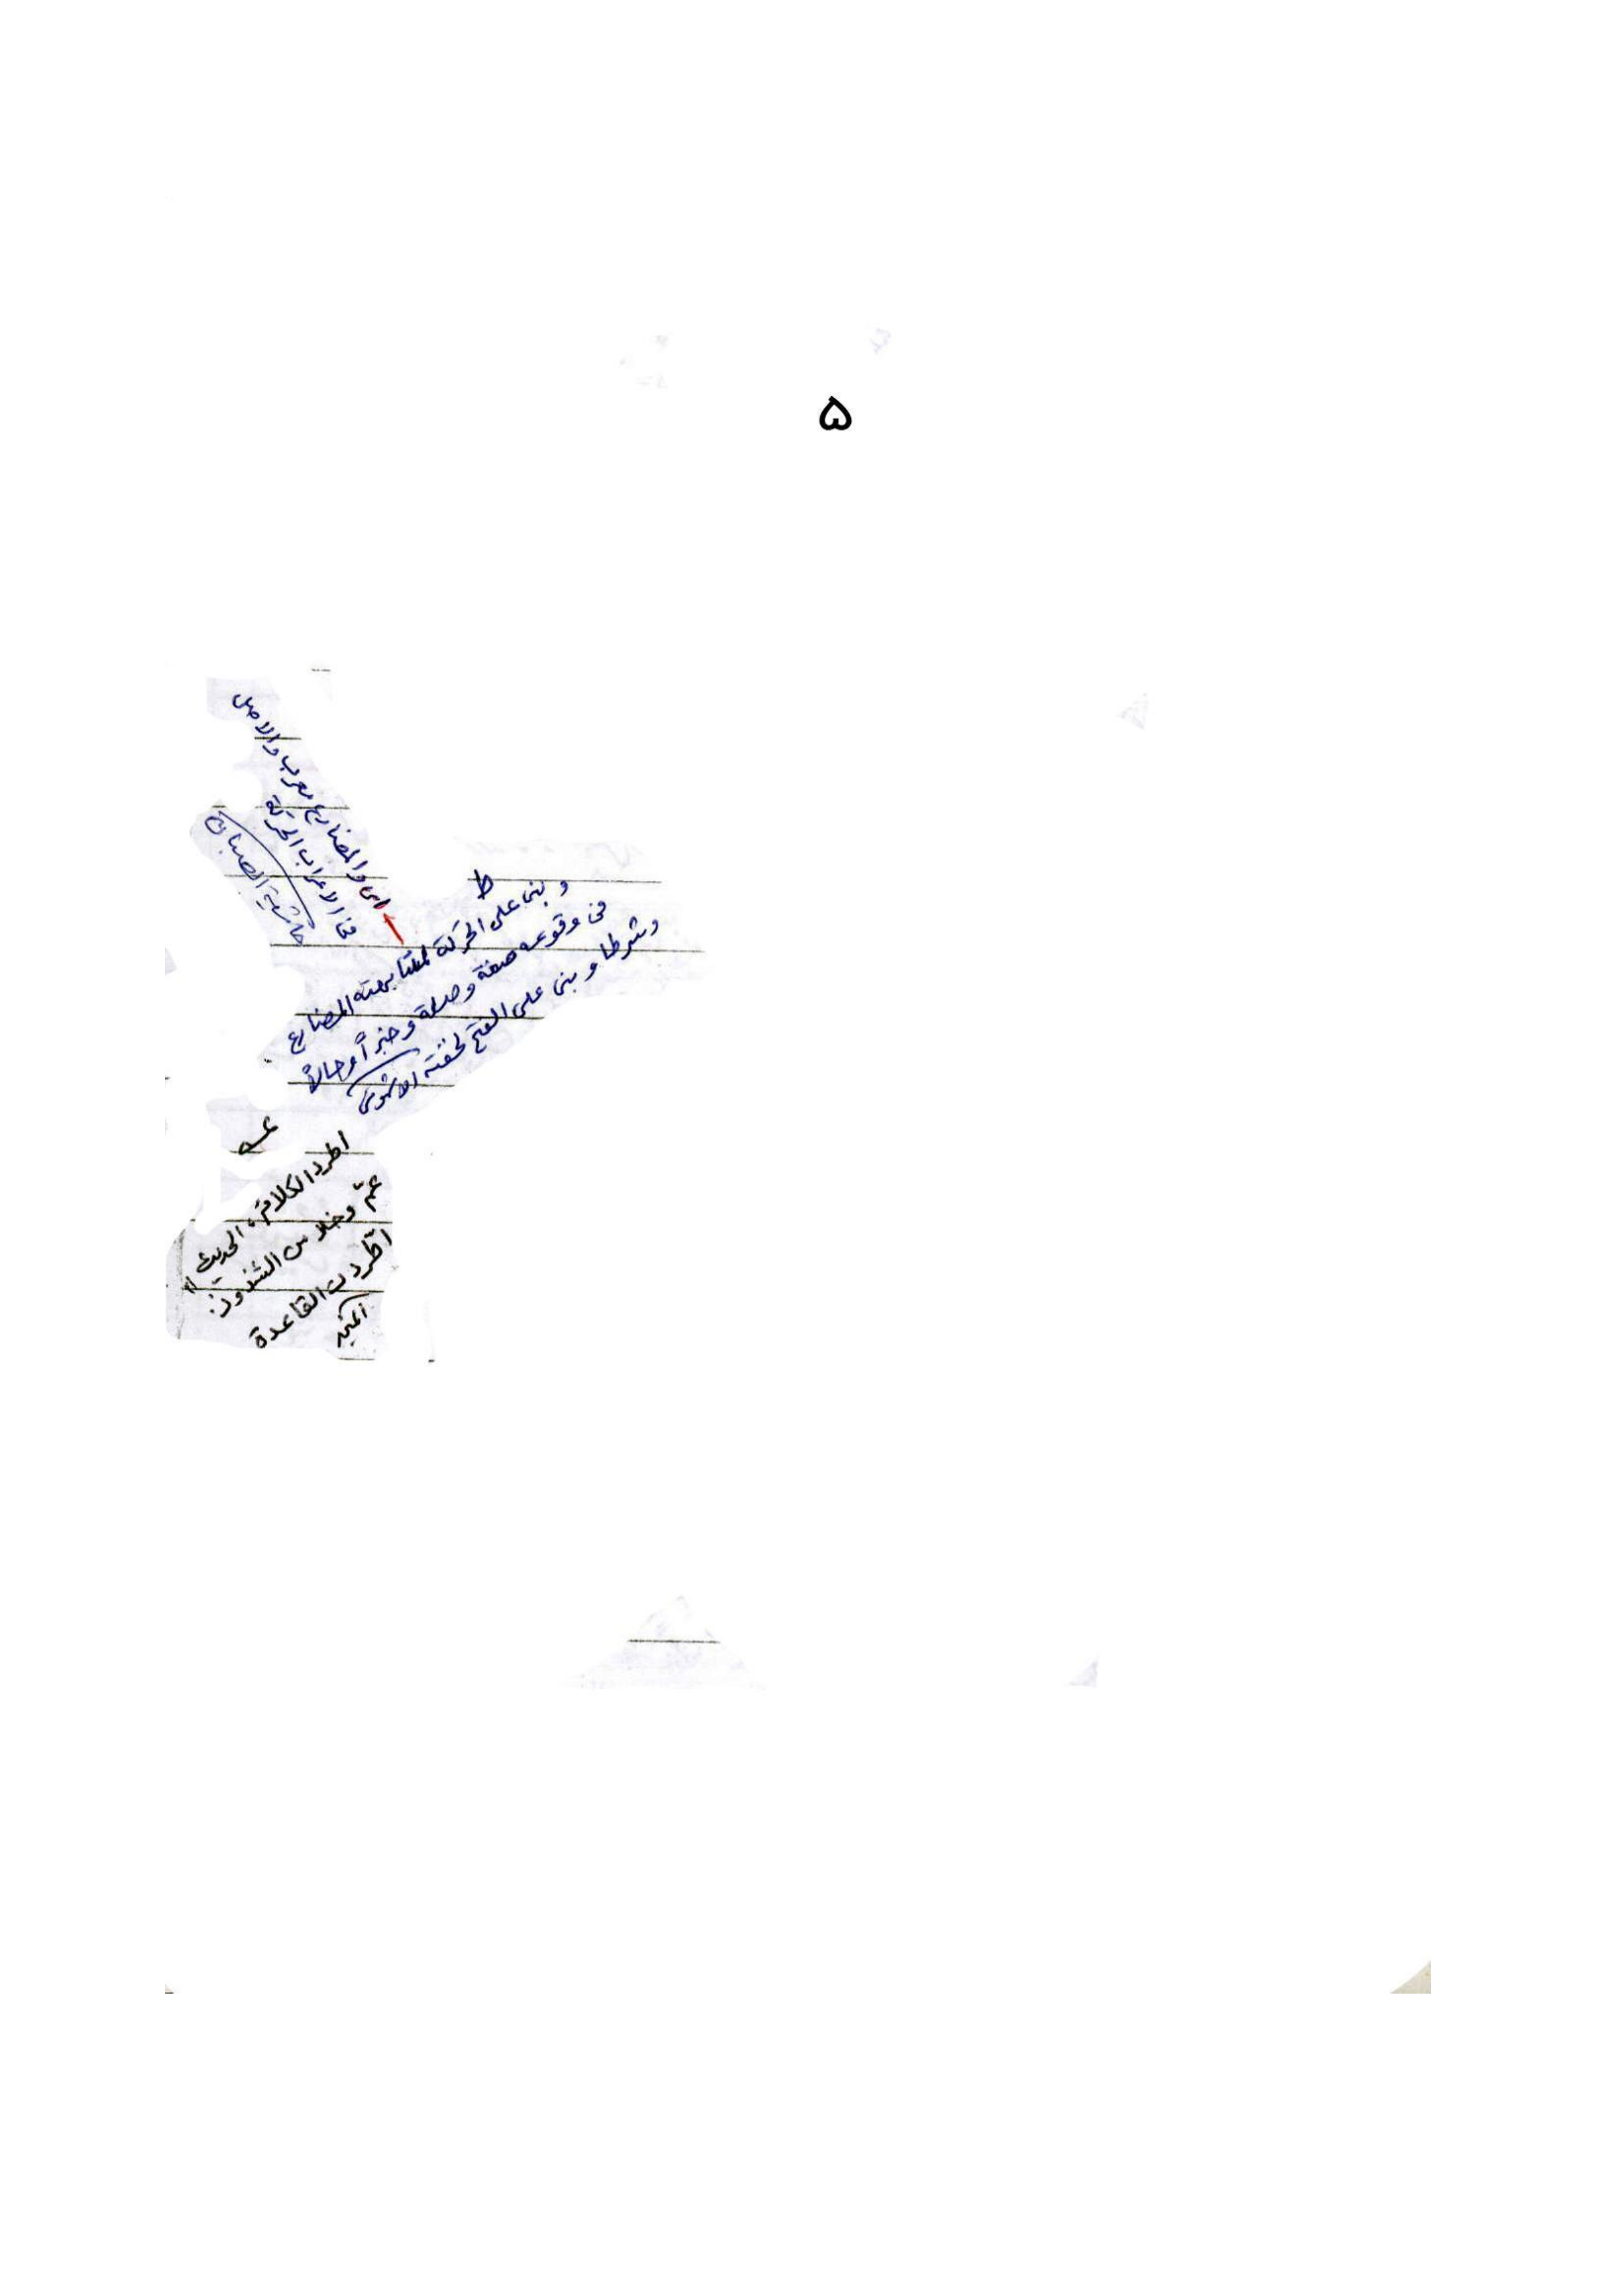 ۵
اى والمضارع معرب والاصل
فى الاعراب الحركة
حاشية الصبان
ط
و بنى على الحركة لمشابهته المضارع
فى وقوعه صفة وصلة وخبراً وحالاً
وشرطا و بنى على الفتح لخفته الاشمونى
عسه
اطرد الكلامُ، الحديث
عمّ وخلا من الشذوذ:
اطّردت القاعدة
المنجد